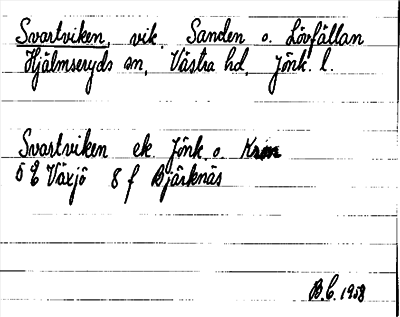 Svartviken, vik, Sanden o. Lövfällan
Hjälmseryds sn, Västra hd, Jönk. l.
Svartviken ek. Jönk. o. Kron
5 E Växjö 8 f Bjärknäs
B.C. 1958